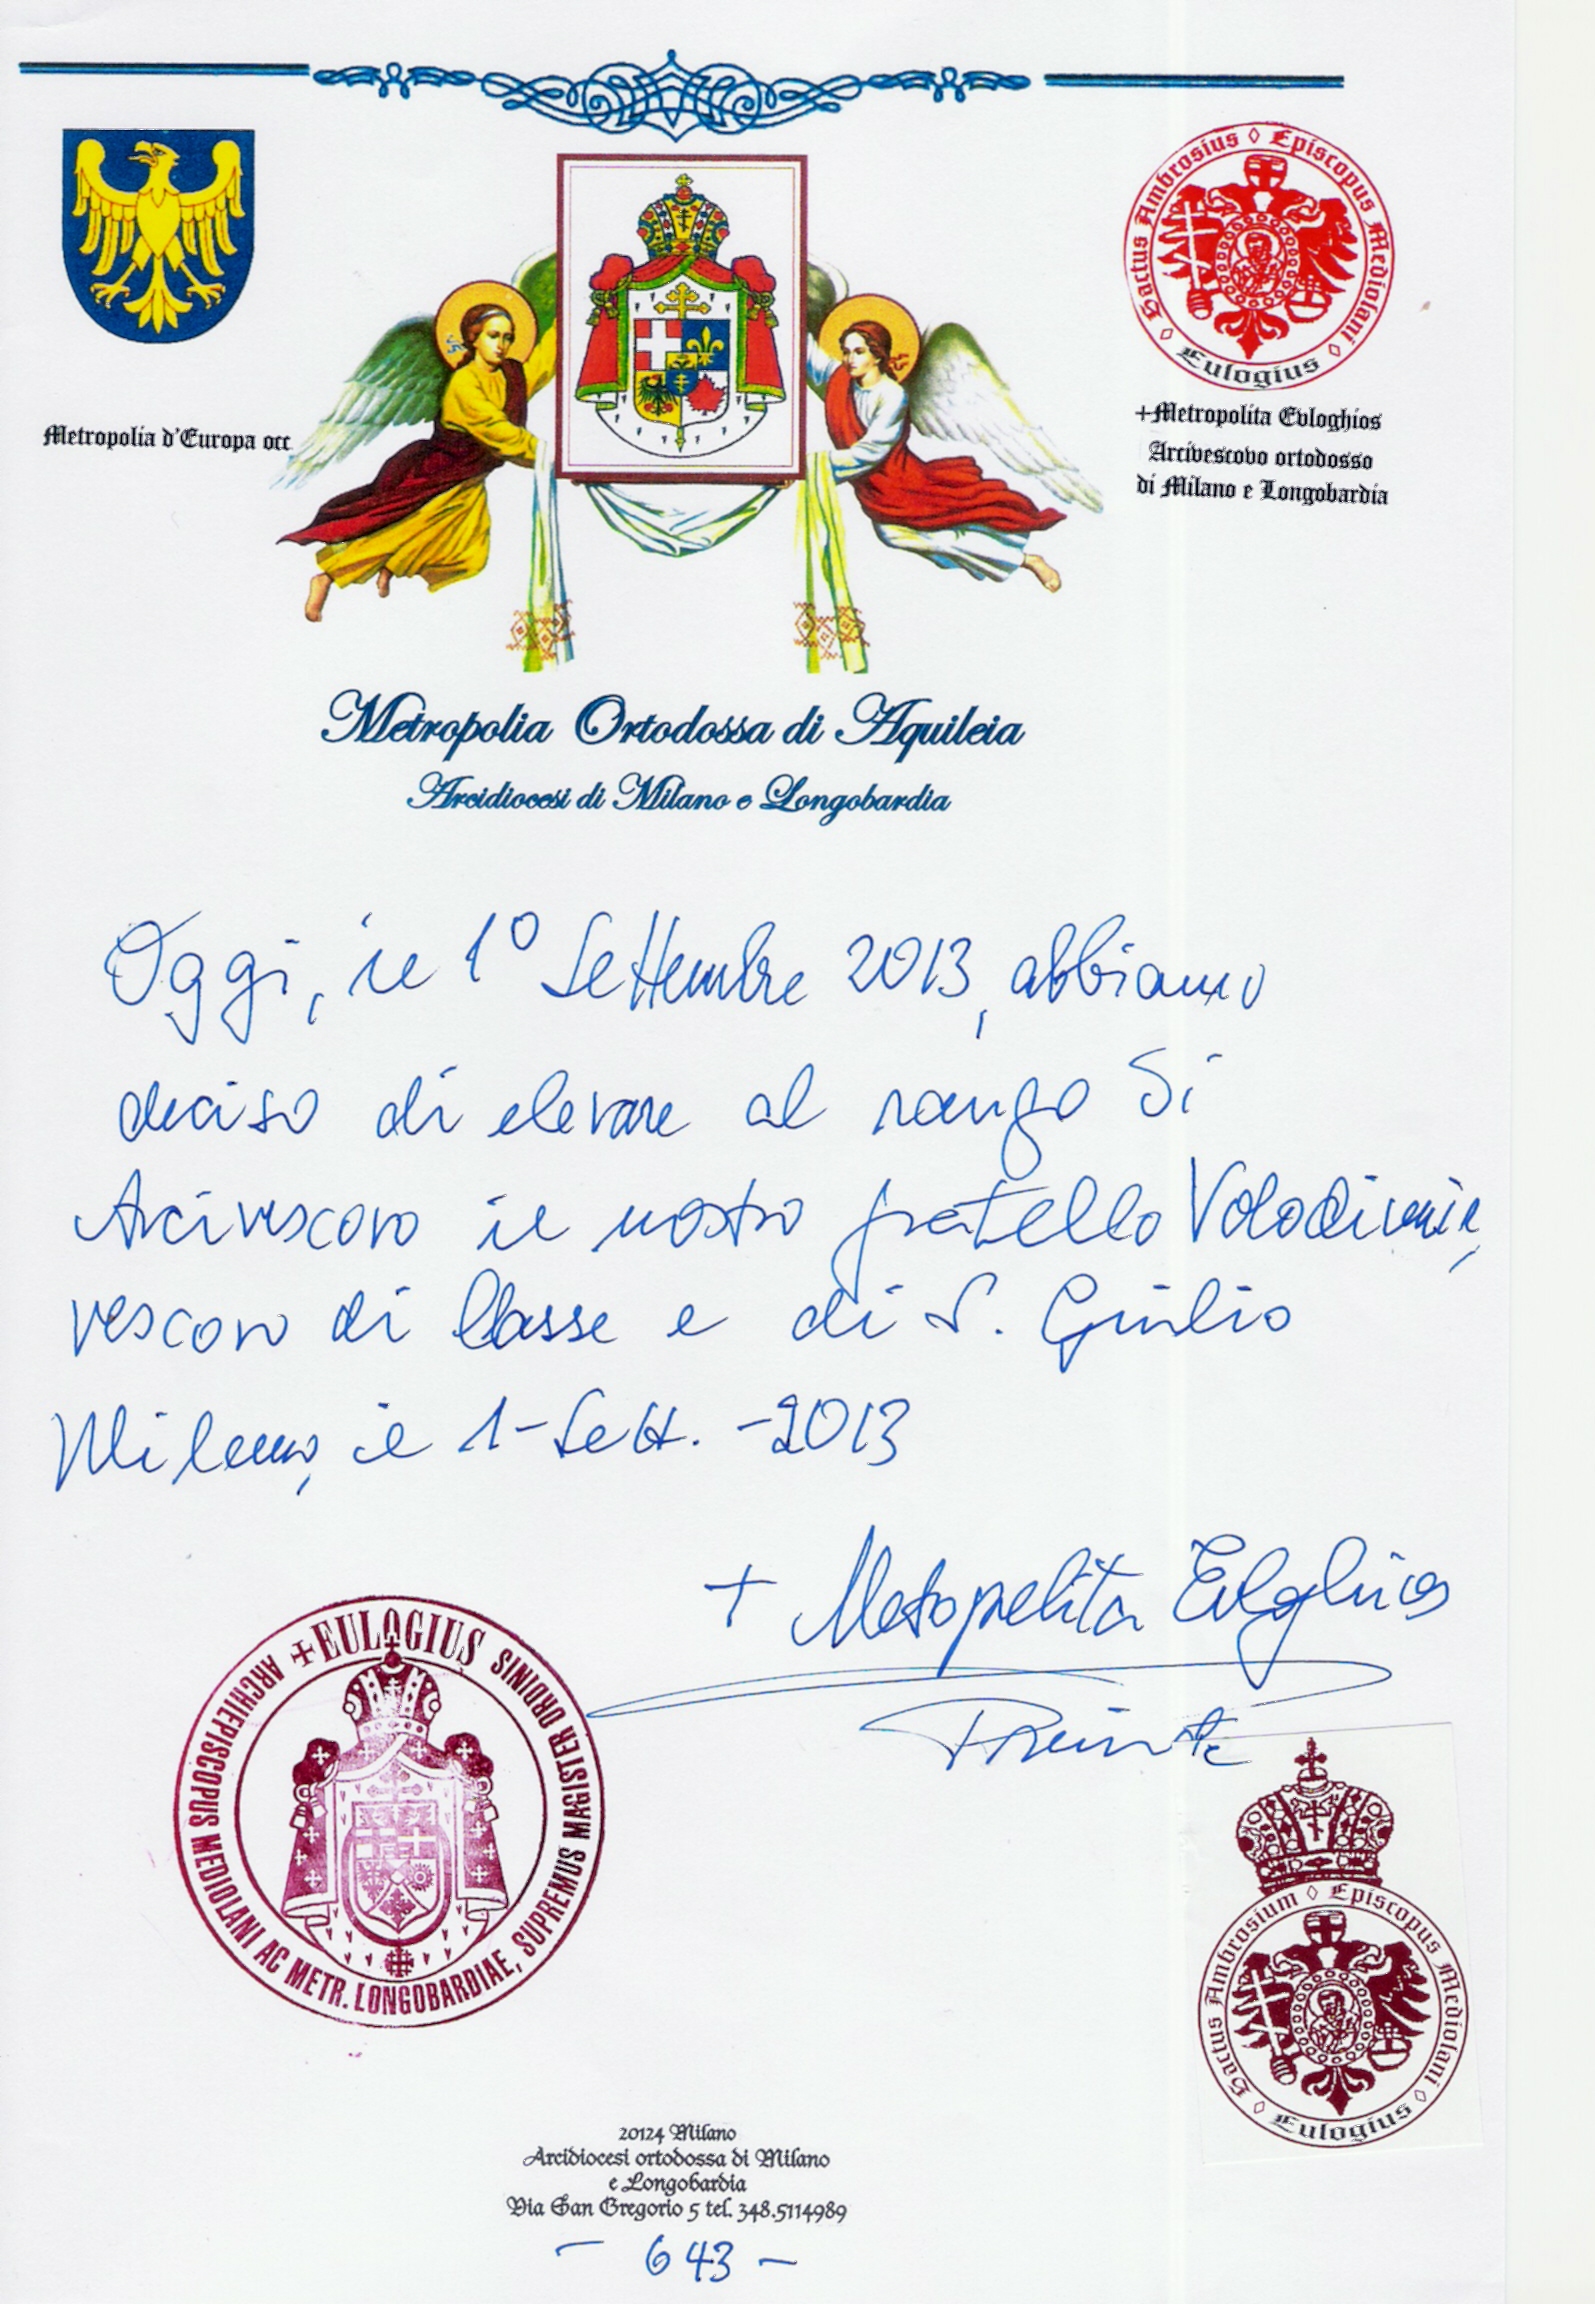 Metropolia d'Europa occ
Sactus Ambrosius ◊ Episcopus Mediolani ◊
Eulogius
+Metropolita Evloghios
Arcivescovo ortodosso
di Milano e Longobardia
Metropolia Ortodossa di Aquileia
Arcidiocesi di Milano e Longobardia
Oggi, il 1° Settembre 2013, abbiamo
deciso di elevare al rango di
Arcivescovo il nostro fratello Volodimir,
vescovo di Classe e di S. Giulio
Milano, il 1-Sett.-2013
+ Metropolita Evloghios
+EULOGIUS
ARCHIEPISCOPUS MEDIOLANI AC METR. LONGOBARDIAE, SUPREMUS MAGISTER ORDINIS
Sactus Ambrosium ◊ Episcopus Mediolani ◊
Eulogius
20124 Milano
Arcidiocesi ortodossa di Milano
e Longobardia
Via San Gregorio 5 tel. 348.5114989
- 643 -